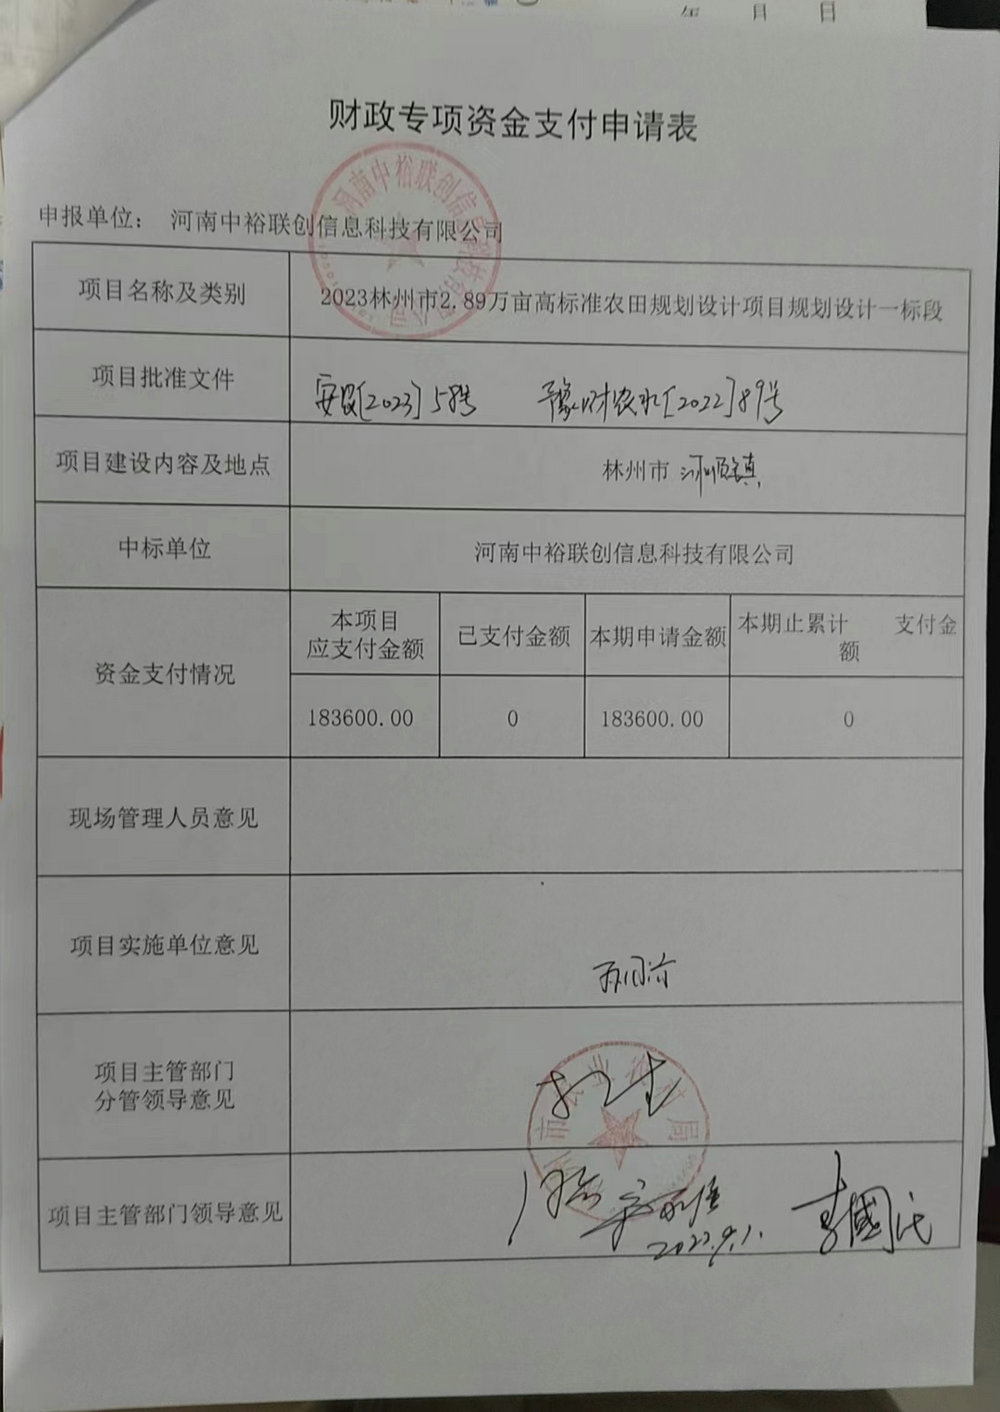 年 月 日
财政专项资金支付申请表
申报单位： 河南中裕联创信息科技有限公司
项目名称及类别
2023林州市2.89万亩高标准农田规划设计项目规划设计一标段
项目批准文件
安农[2023]58号 豫财农水[2022]89号
项目建设内容及地点
林州市 河顺镇
中标单位
河南中裕联创信息科技有限公司
资金支付情况
本项目
应支付金额
已支付金额
本期申请金额
本期止累计 支付金
额
183600.00
0
183600.00
0
现场管理人员意见
项目实施单位意见
项目主管部门
分管领导意见
项目主管部门领导意见
李國氏